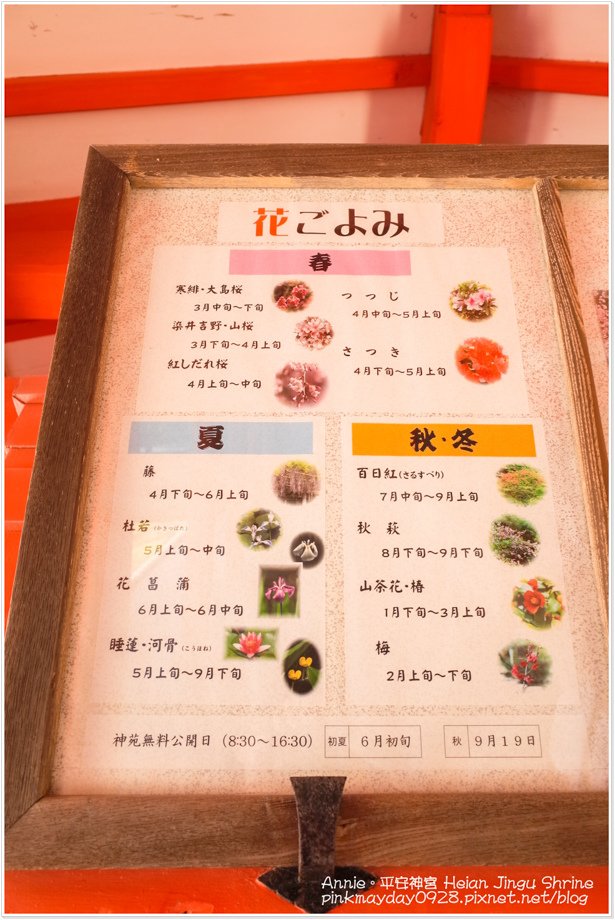 花ごよみ
春
寒緋・大島桜
3月中旬～下旬
染井吉野・山桜
3月下旬～4月上旬
紅しだれ桜
4月上旬～中旬
つつじ
4月中旬～5月上旬
さつき
4月下旬～5月上旬
夏
藤
4月下旬～6月上旬
杜若(かきつばた)
5月上旬～中旬
花菖蒲
6月上旬～6月中旬
睡蓮・河骨(こうほね)
5月上旬～9月下旬
秋・冬
百日紅(さるすべり)
7月中旬～9月上旬
秋萩
8月下旬～9月下旬
山茶花・椿
1月下旬～3月上旬
梅
2月上旬～下旬
神苑無料公開日（8:30～16:30） 初夏 6月初旬 秋 9月19日
Annie。平安神宮 Heian Jingu Shrine
pinkmayday0928.pixnet.net/blog